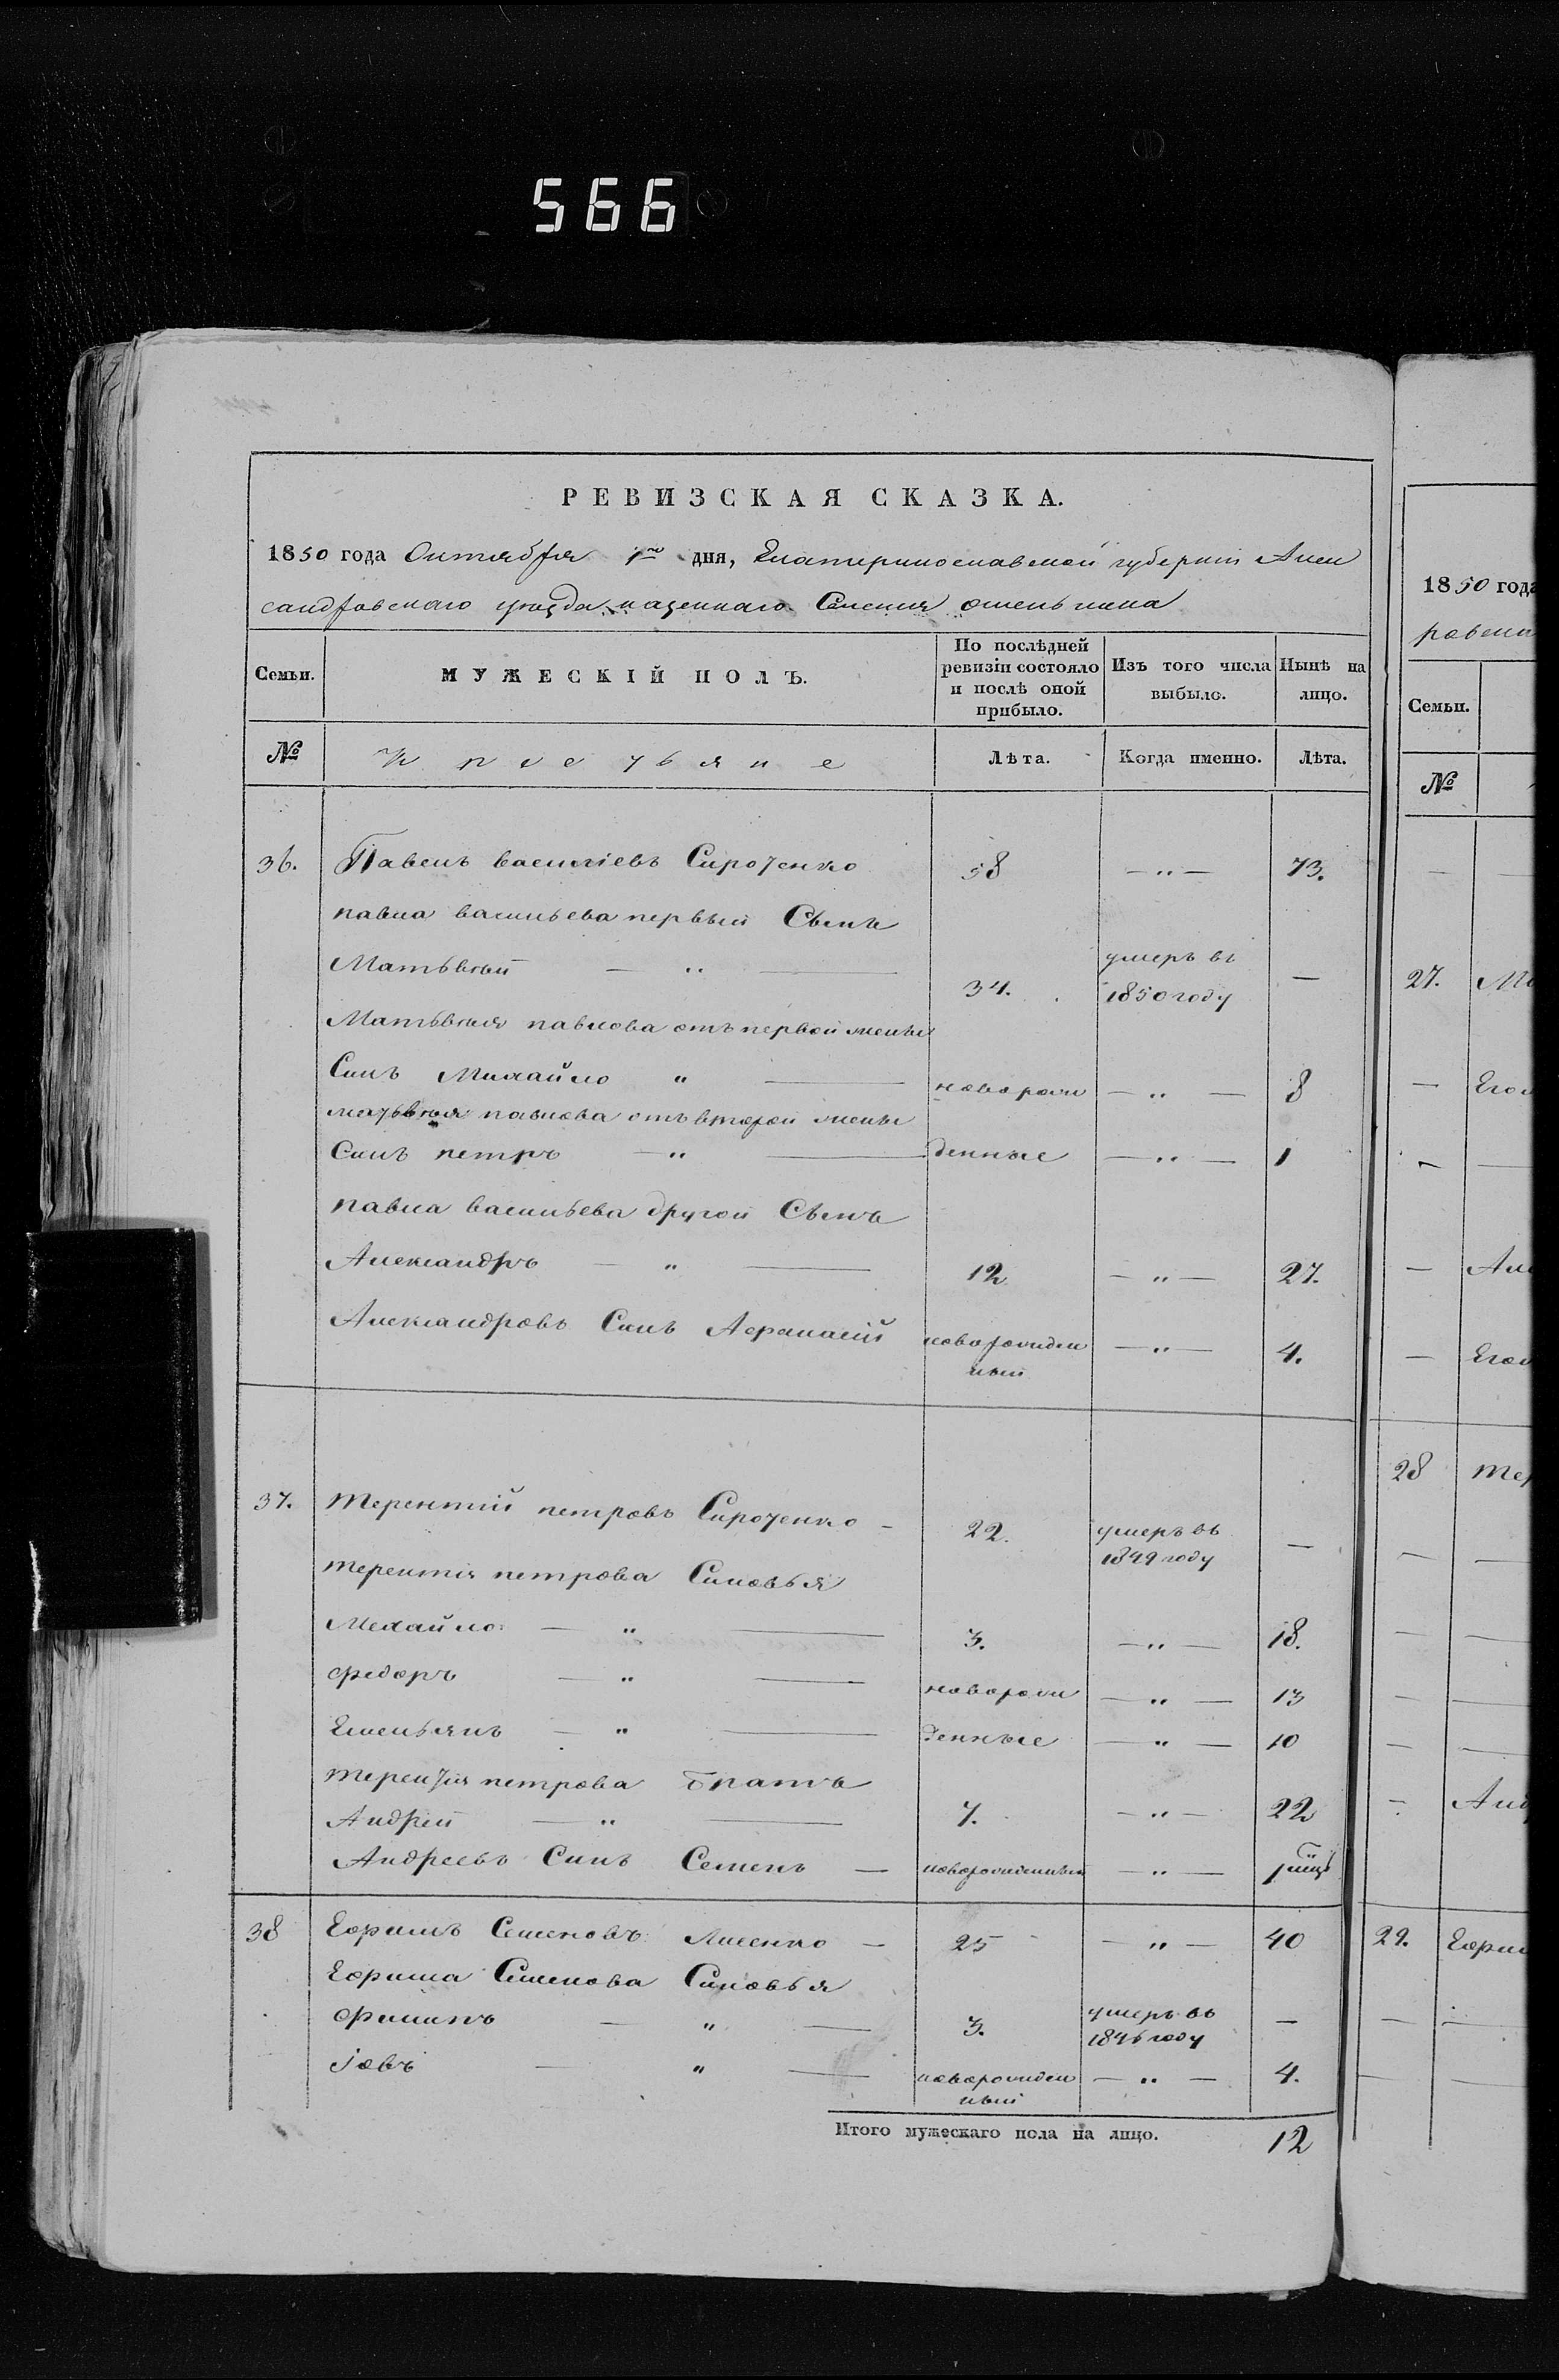 566
РЕВИЗСКАЯ СКАЗКА.
1850 года Октября 1го дня, Екатеринославской губернiи Алек
сандровскаго уѣзда казеннаго Селения
Семьи. МУЖЕСКІЙ ПОЛЪ. По послѣдней ревизіи состояло и послѣ оной прибыло. Изъ того числа выбыло. Нынѣ на лицо.
№ Крестьяне Лѣта. Когда именно. Лѣта.
36. Павелъ василіевъ Сироченко 58 — " — 73.
павла васильева первый Сынъ
Матьвѣй — " — 34. умеръ въ 1850 году —
Матьвѣя павлова отъ первой жены
Синъ Михайло " — новорож — " — 8
матьвѣя павлова отъ второй жены
Синъ петръ — " — денные — " — 1
павла васильева другой Сынъ
Александръ — " — 12 — " — 27.
Александровъ Синъ Афанасій новорожден ный — " — 4.
37. Терентій петровъ Сироченко — 22. умеръ въ 1849 году —
терентія петрова Синовья
Мехайло — " — 3. — " — 18.
федоръ — " — новорож — " — 13
Емельянъ — " — денные — " — 10
терентія петрова братъ
Андрей — " — 7. — " — 22
Андреевъ Синъ Семенъ — новорожденный — " —
38 Ефимъ Семеновъ Лисенко — 25 — " — 40
Ефима Семенова Синовья
филипъ — " — 3. умеръ въ 1846 году —
Іовъ — " — новорожден ный — " — 4.
Итого мужескаго пола на лицо. 12
1850 года
Семьи.
№
27.
Егов
Але
Егов
28
Анд
29. Ефим